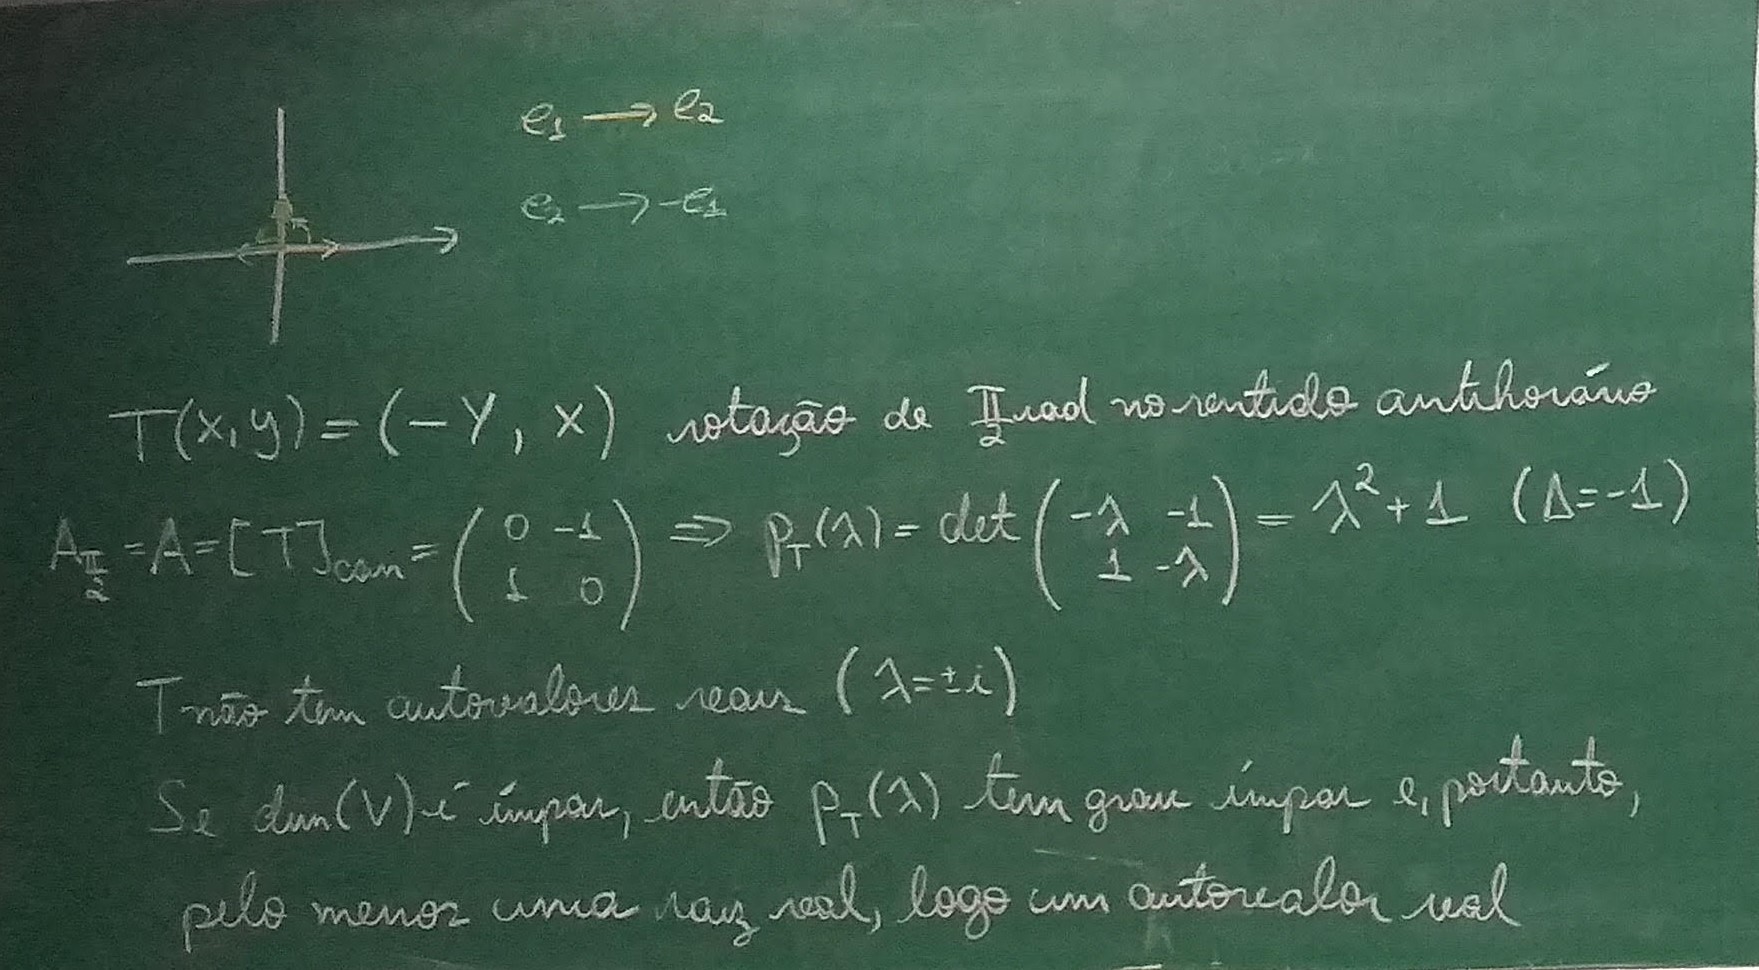 e₁ → e₂
e₂ → -e₁
T(x,y) = (-y, x) rotação de π/2 rad no sentido antihorário
A_{π/2} = A = [T]_{can} = (0 -1; 1 0) ⇒ p_T(λ) = det(-λ -1; 1 -λ) = λ² + 1 (Δ=-1)
T não tem autovalores reais (λ=±i)
Se dim(V) é ímpar, então p_T(λ) tem grau ímpar e, portanto,
pelo menos uma raiz real, logo um autovalor real